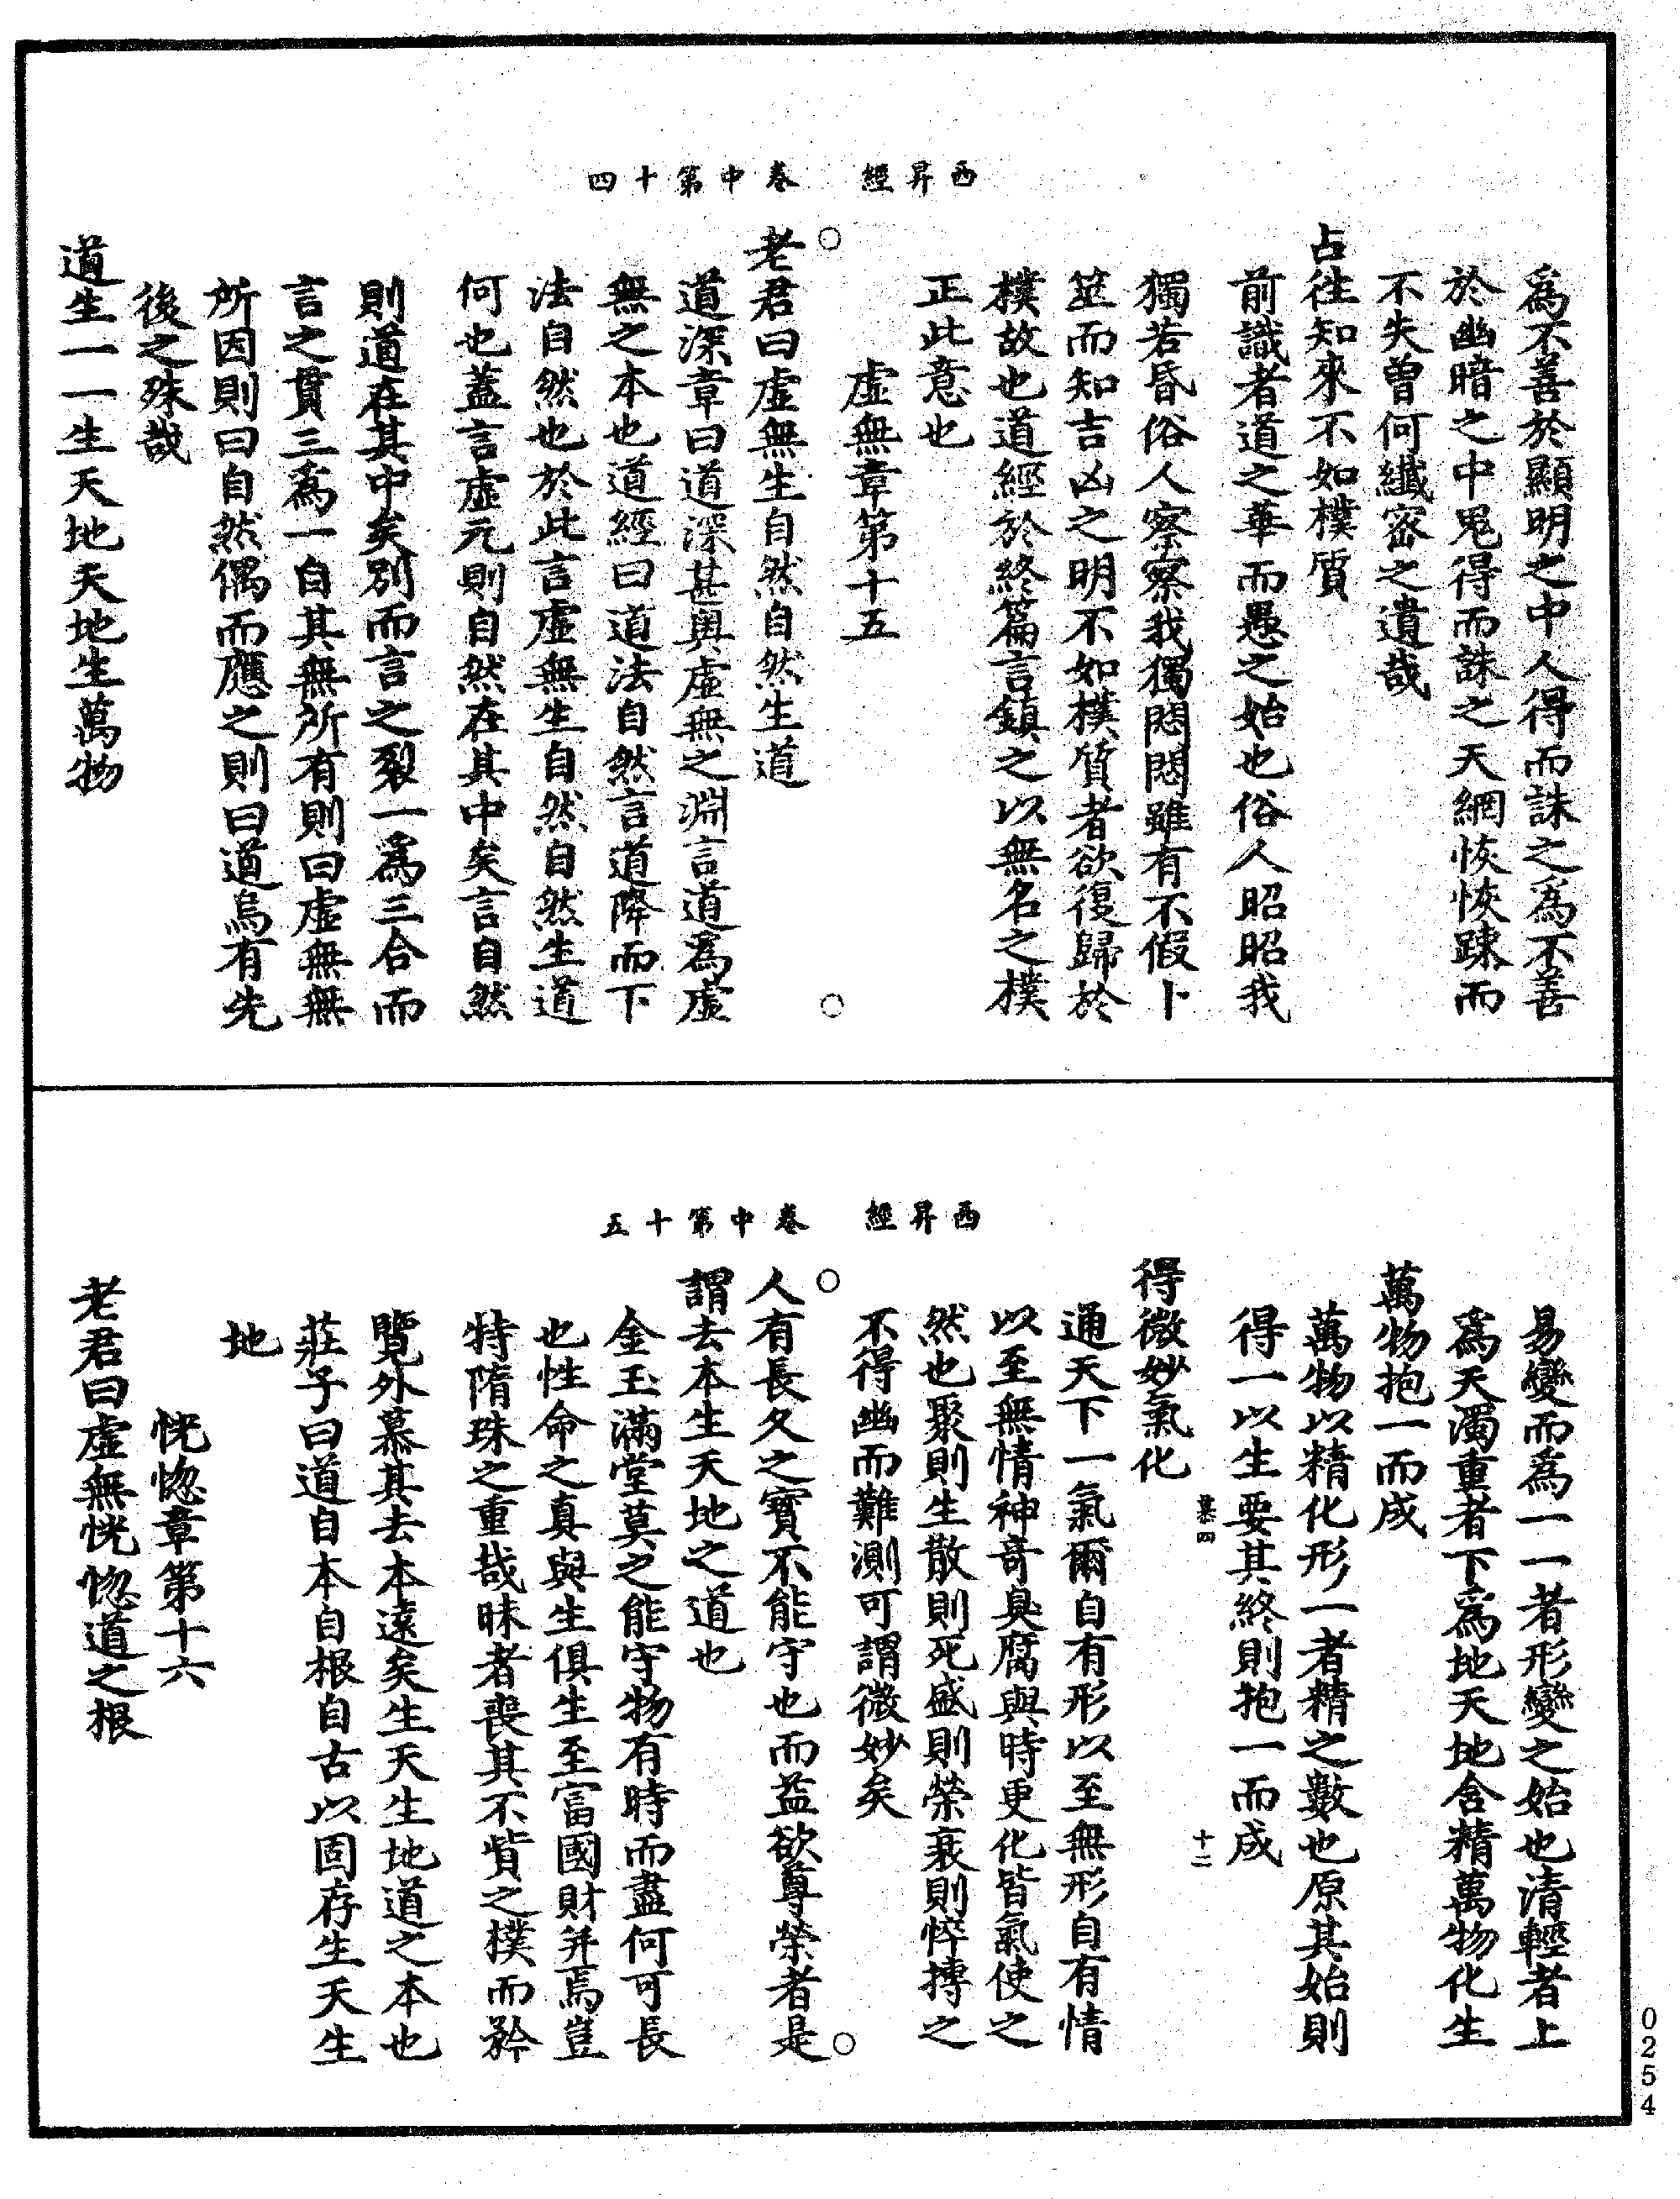 西昇經　卷中第十四
爲不善於顯明之中人得而誅之爲不善
於幽暗之中鬼得而誅之天網恢恢踈而
不失曾何纖宻之遺哉
占徃知來不如樸質
前識者道之華而愚之始也俗人昭昭我
獨若昏俗人察察我獨悶悶雖有不假卜
筮而知吉凶之明不如樸質者欲復歸於
樸故也道經於終篇言鎮之以無名之樸
正此意也
虛無章第十五
老君曰虛無生自然自然生道
道深章曰道深甚奧虛無之淵言道爲虛
無之本也道經曰道法自然言道降而下
法自然也於此言虛無生自然自然生道
何也蓋言虛元則自然在其中矣言自然
則道在其中矣別而言之裂一爲三合而
言之貫三爲一自其無所有則曰虛無無
所因則曰自然偶而應之則曰道烏有先
後之殊哉
道生一一生天地天地生萬物
西昇經　卷中第十五
易變而爲一一者形變之始也清輕者上
爲天濁重者下爲地天地含精萬物化生
萬物抱一而成
萬物以精化形一者精之數也原其始則
得一以生要其終則抱一而成
慕四　十二
得微妙氣化
通天下一氣爾自有形以至無形自有情
以至無情神奇臭腐與時更化皆氣使之
然也聚則生散則死盛則榮衰則悴摶之
不得幽而難測可謂微妙矣
人有長久之寶不能守也而益欲尊榮者是
謂去本生天地之道也
金玉滿堂莫之能守物有時而盡何可長
也性命之真與生俱生至富國財并焉豈
特隋珠之重哉昧者喪其不貲之樸而矜
覽外慕其去本遠矣生天生地道之本也
莊子曰道自本自根自古以固存生天生
地
恍惚章第十六
老君曰虛無恍惚道之根
0254